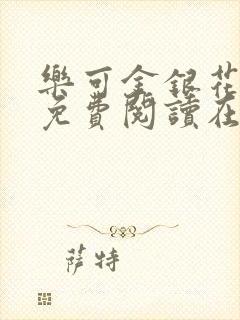 樂可金銀花
免費閱讀在
萨特